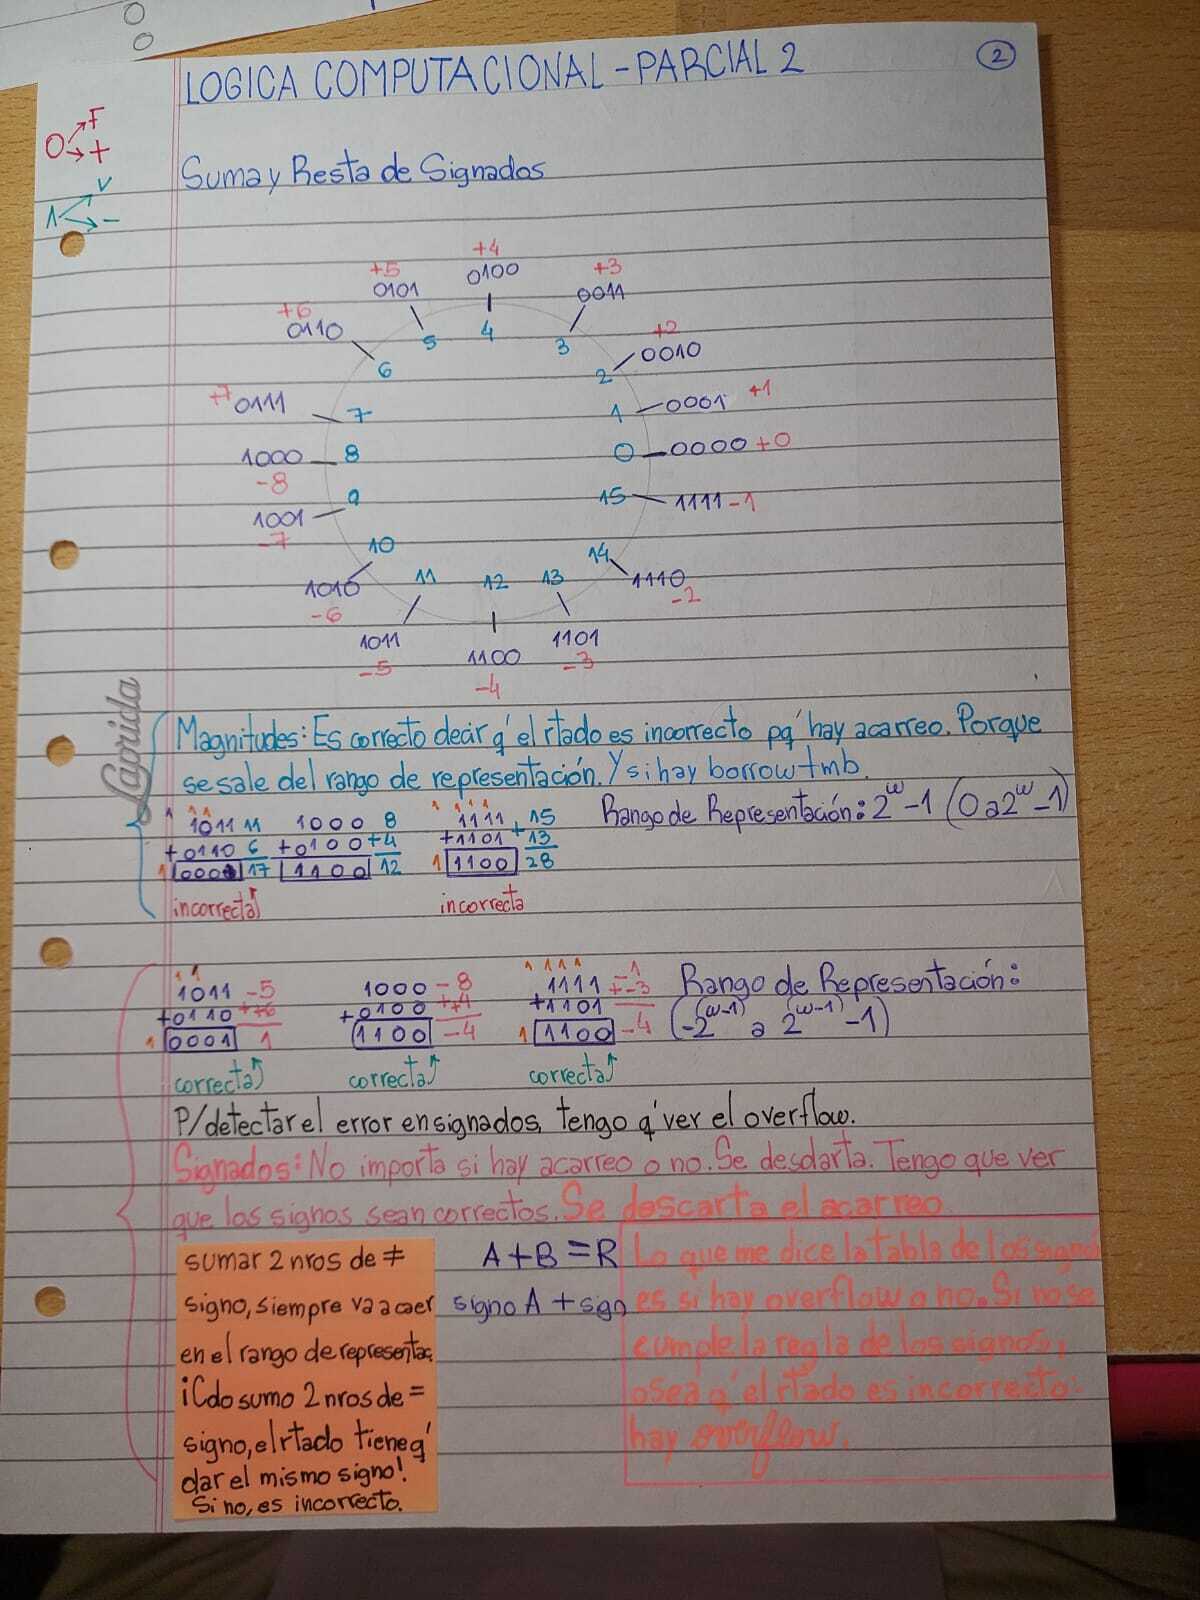 LOGICA COMPUTACIONAL - PARCIAL 2
2
0 → F
→ +
1 → V
→ -
Suma y Resta de Signados
+4
0100
+5
0101
+3
0011
+6
0110
+2
0010
+7 0111
0001 +1
1000
-8
0000 +0
1001
-7
1111 -1
1010
-6
1110
-2
1011
-5
1100
-4
1101
-3
0 1 2 3 4 5 6 7 8 9 10 11 12 13 14 15
Laprida
Magnitudes: Es correcto decir q' el rtado es incorrecto pq' hay acarreo. Porque
se sale del rango de representación. Y si hay borrow tmb.
Rango de Representación: 2^w - 1 (0 a 2^w - 1)
1 1 1
1011 11
+0110 6
1 0001 17
incorrecta
1000 8
+0100 +4
1100 12
1 1 1 1
1111 + 15
+1101 13
1 1100 28
incorrecta
1 1
1011 -5
+0110 ++6
1 0001 1
correcta
1000 -8
+0100 ++4
1100 -4
correcta
1 1 1 1
1111 -1
+1101 +-3
1 1100 -4
correcta
Rango de Representación:
(-2^(w-1) a 2^(w-1) - 1)
P/ detectar el error en signados, tengo q' ver el overflow.
Signados: No importa si hay acarreo o no. Se desdarta. Tengo que ver
que los signos sean correctos. Se descarta el acarreo.
sumar 2 nros de ≠
signo, siempre va a caer
en el rango de representac.
¡Cdo sumo 2 nros de =
signo, el rtado tiene q'
dar el mismo signo!
Si no, es incorrecto.
A + B = R
signo A + sgn
Lo que me dice la tabla de los signo
es si hay overflow o no. Si no se
cumple la regla de los signos,
o sea q' el rtado es incorrecto:
hay overflow.